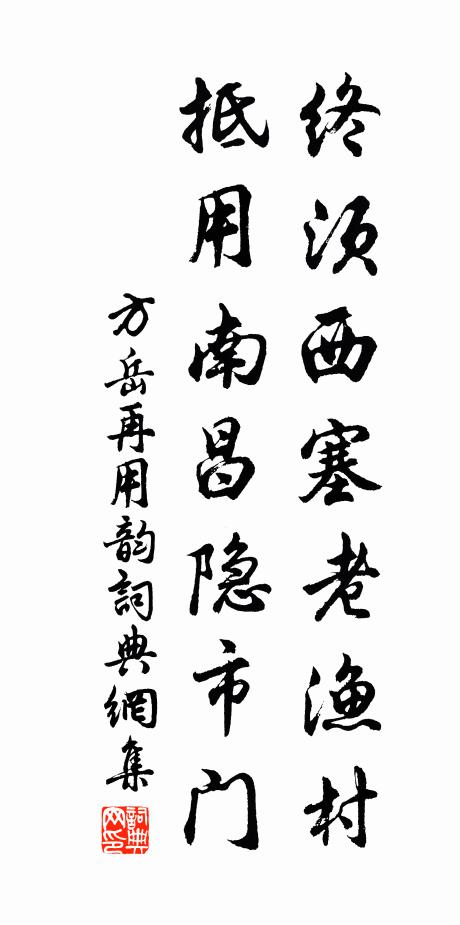 终须西塞老渔村
抵用南昌隐市门
方岳再用韵詞典網集
詞典网印